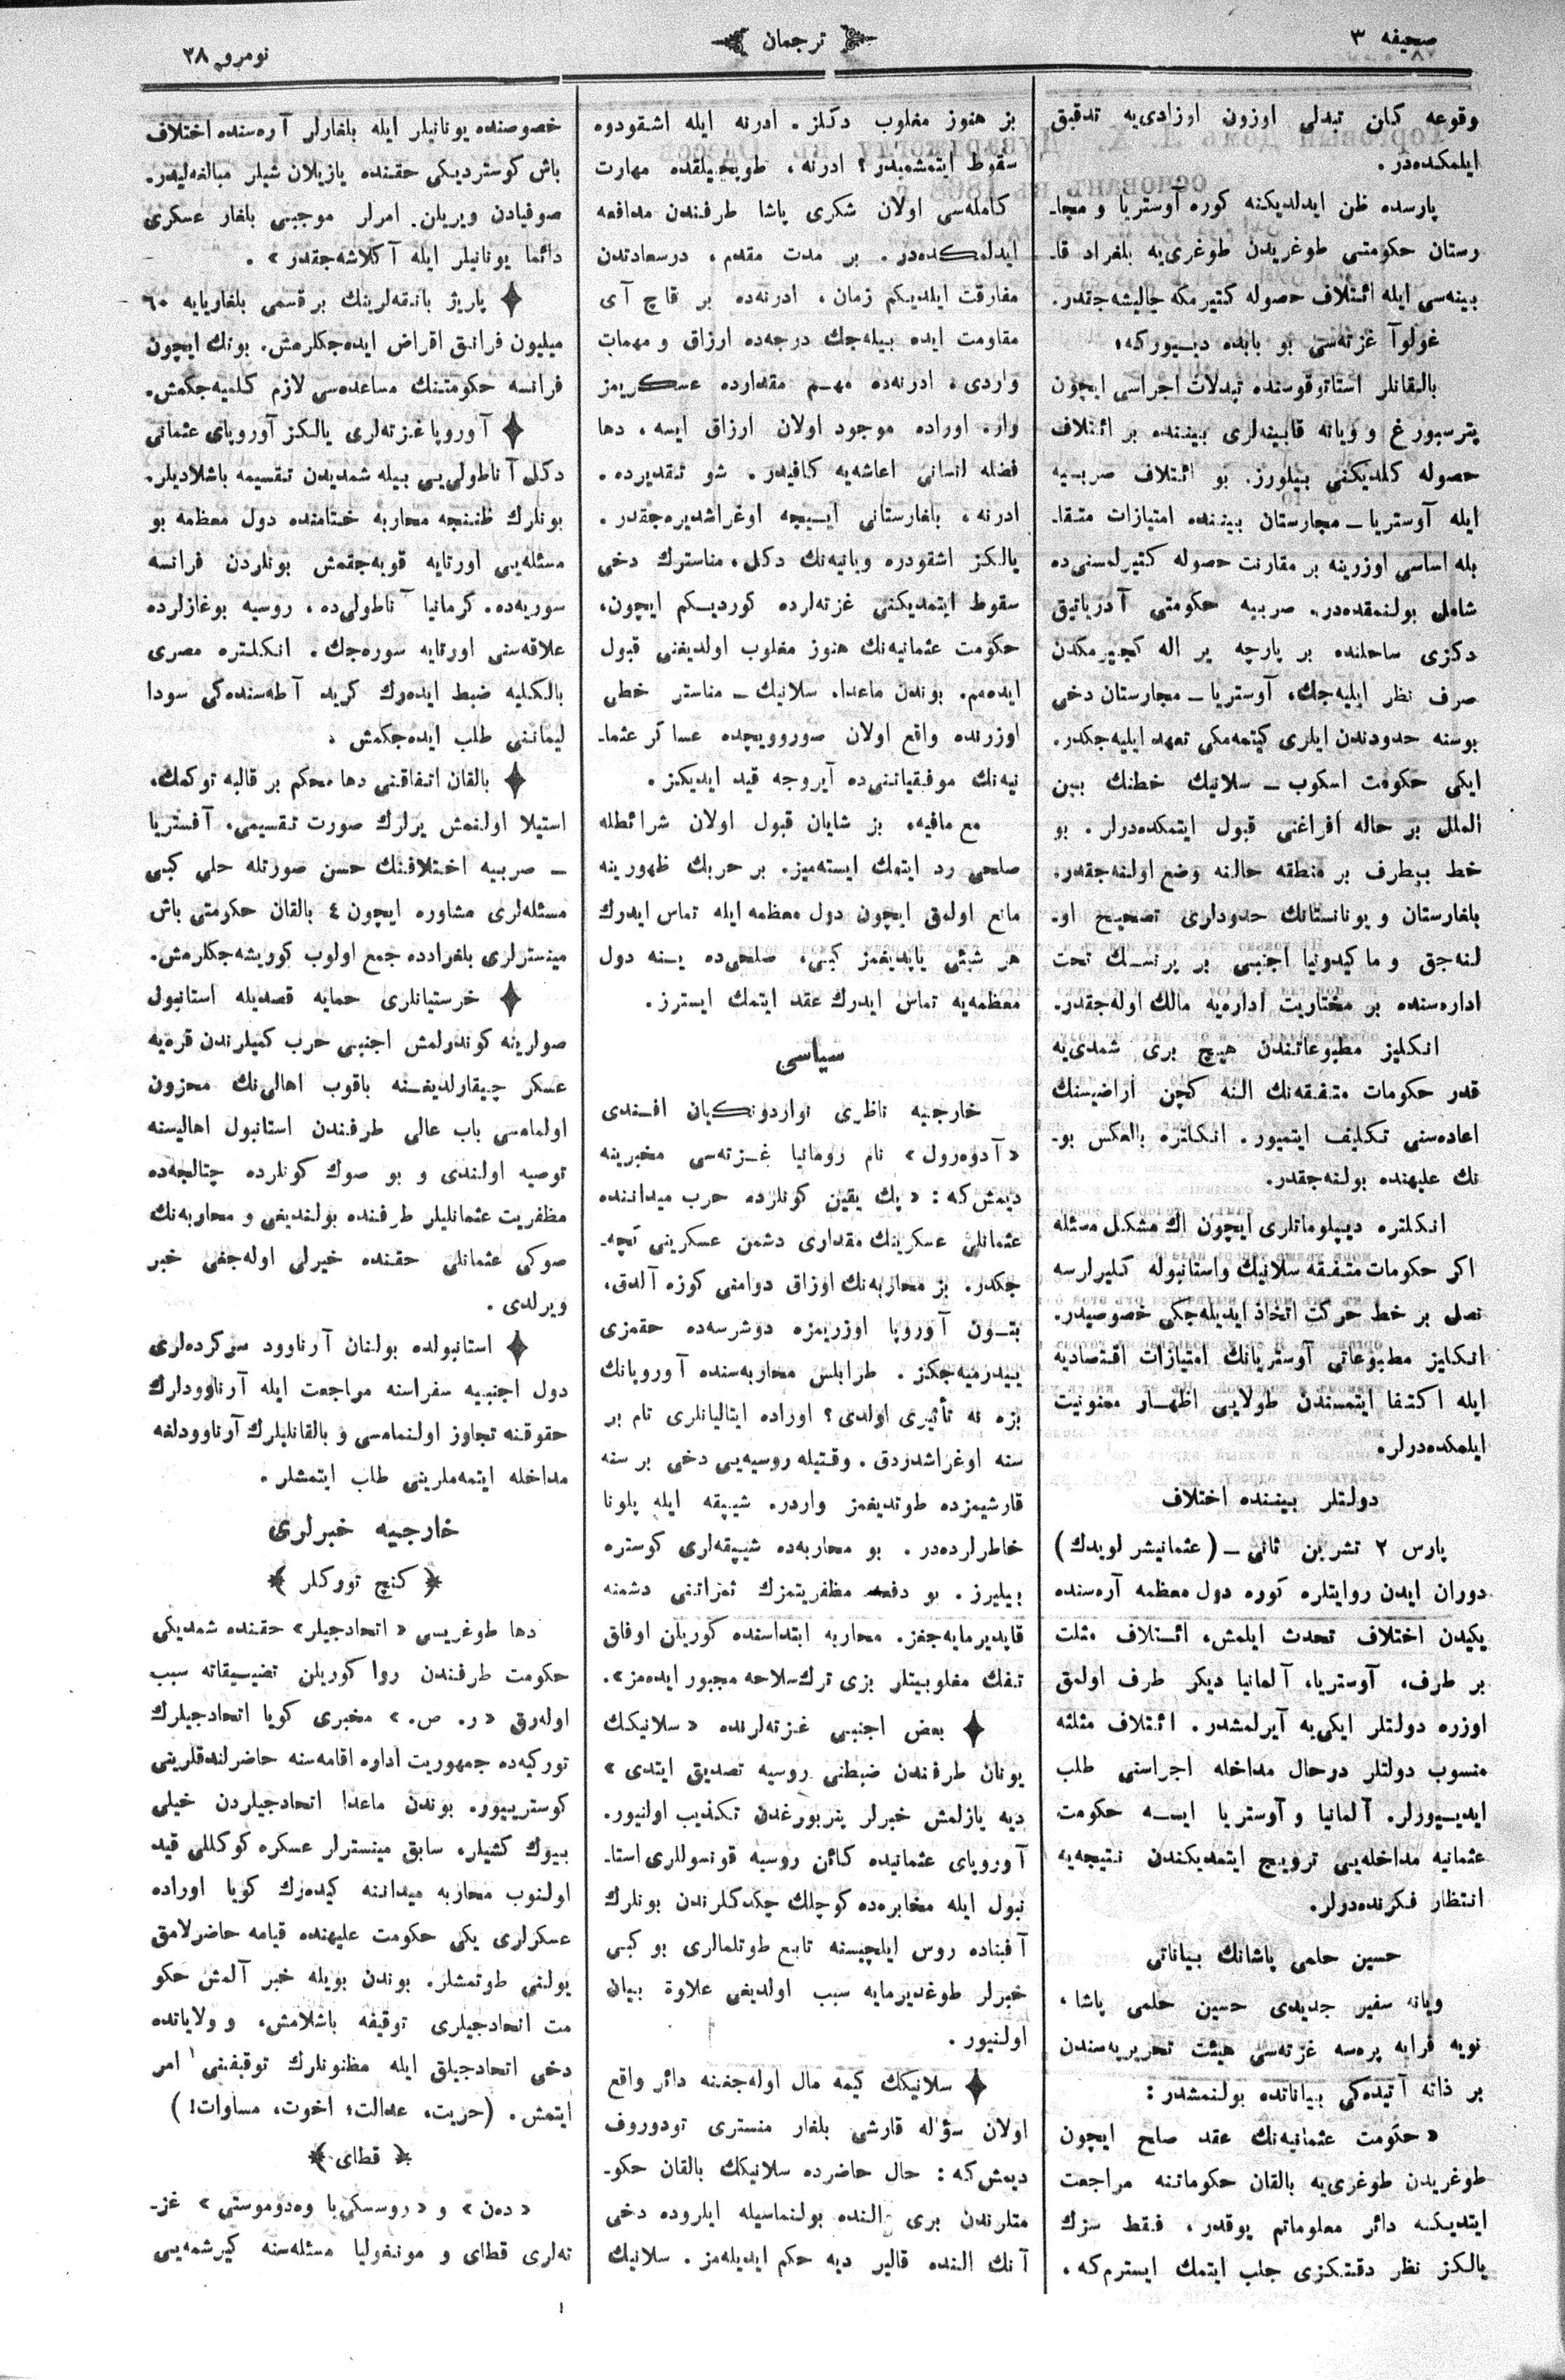 صحیفه ۳
ترجمان
نومرو ۲۸
وقوعه كلن تبدلی اوزون اوزادی‌یه تدقیق
ایلمكده‌در.
پارسده ظن ایدلدیكنه كوره آوستریا و مجا‌ـ
رستان حكومتی طوغریدن طوغری‌یه بلغراد قا‌ـ
بینه‌سی ایله ائتلاف حصوله كتیرمكه چالیشه‌جقدر.
غولوآ غزته‌سی بو بابده دیـیوركه:
بالقانلر استاتوقوسنده تبدلات اجراسی ایچون
پترسبورغ و ویانه قابینه‌لری بیننده بر ائتلاف
حصوله كلدیكنی بیلورز. بو ائتلاف صربیه
ایله آوستریا ـ مجارستان بیننده امتیازات متقا‌ـ
بله اساسی اوزرینه بر مقارنت حصوله كتیرلمسنی‌ده
شامل بولنمقده‌در. صربیه حكومتی آدریاتیق
دكزی ساحلنده بر پارچه یر اله كچیرمكدن
صرف نظر ایلیه‌جك، آوستریا ـ مجارستان دخی
بوسنه حدودندن ایلری كیتمه‌مكی تعهد ایلیه‌جكدر.
ایكی حكومت اسكوب ـ سلانیك خطنك بین
الملل بر حاله افراغنی قبول ایتمكده‌درلر. بو
خط بیطرف بر منطقه حالنه وضع اولنه‌جقدر.
بلغارستان و یونانستانك حدودلری تصحیح او‌ـ
لنه‌جق و ماكیدونیا اجنبی بر پرنسـك تحت
اداره‌سنده بر مختاریت اداره‌یه مالك اوله‌جقدر.
انكلیز مطبوعاتندن هیچ بری شمدی‌یه
قدر حكومات متفقه‌نك النه كچن اراضینك
اعاده‌سنی تكلیف ایتمیور. انكلتره بالعكس بو‌ـ
نك علیهنده بولنه‌جقدر.
انكلتره دیپلوماتلری ایچون اك مشكل مسئله
اكر حكومات متفقه سلانیك واستانبوله كلیرلرسه
نصل بر خط حركت اتخاذ ایدیله‌جكی خصوصیدر.
انكلیز مطبوعاتی آوستریانك امتیازات اقتصادیه
ایله اكتفا ایتمسندن طولایی اظهـار ممنونیت
ایلمكده‌درلر.
دولتلر بیننده اختلاف
پارس ۲ تشرین ثانی ـ (عثمانیشر لویدك)
دوران ایدن روایتلره كوره دول معظمه آره‌سنده
یكیدن اختلاف تحدث ایلمش، ائتلاف مثلث
بر طرف، آوستریا، آلمانیا دیكر طرف اولمق
اوزره دولتلر ایكی‌یه آیرلمشدر. ائتلاف مثلثه
منسوب دولتلر درحال مداخله اجراسنی طلب
ایدیـیورلر. آلمانیا و آوستریا ایسه حكومت
عثمانیه مداخله‌یی ترویج ایتمدیكندن نتیجه‌یه
انتظار فكرنده‌درلر.
حسین حلمی پاشانك بیاناتی
ویانه سفیر جدیدی حسین حلمی پاشا،
نویه فرایه پره‌سه غزته‌سی هیئت تحریریه‌سندن
بر ذاته آتیده‌كی بیاناتده بولنمشدر:
« حكومت عثمانیه‌نك عقد صلح ایچون
طوغریدن طوغری‌یه بالقان حكوماتنه مراجعت
ایتدیكنه دائر معلوماتم یوقدر، فقط سزك
یالكز نظر دقتكزی جلب ایتمك ایسترم كه،
بز هنوز مغلوب دكلز. ادرنه ایله اشقودره
سقوط ایتمشمیدر؟ ادرنه، طوپجیلقده مهارت
كامله‌سی اولان شكری پاشا طرفندن مدافعه
ایدلمكده‌در. بر مدت مقدم، درسعادتدن
مفارقت ایلدیكم زمان، ادرنه‌ده بر قاچ آی
مقاومت ایده بیله‌جك درجه‌ده ارزاق و مهمات
واردی. ادرنه‌ده مهـم مقدارده عسكریمز
وار. اوراده موجود اولان ارزاق ایسه، دها
فضله انسانی اعاشه‌یه كافیدر. شو تقدیرده.
ادرنه، بلغارستانی ایـیجه اوغراشدیره‌جقدر.
یالكز اشقودره ویانیه‌نك دكل، مناسترك دخی
سقوط ایتمدیكنی غزته‌لرده كوردیكم ایچون،
حكومت عثمانیه‌نك هنوز مغلوب اولدیغنی قبول
ایده‌مم. بوندن ماعدا، سلانیك ـ مناستر خطی
اوزرنده واقع اولان سوروویچده عساكر عثما‌ـ
نیه‌نك موفقیاتنی‌ده آیروجه قید ایدیكز.
مع مافیه، بز شایان قبول اولان شرائطله
صلحی رد ایتمك ایسته‌میز. بر حربك ظهورینه
مانع اولمق ایچون دول معظمه ایله تماس ایدرك
هر شیئی یاپدیغمز كبی، صلحی‌ده یـنه دول
معظمه‌یه تماس ایدرك عقد ایتمك ایسترز.
سیاسی
خارجیه ناظری نوارادونكیان افندی
« آدوه‌رول » نام رومانیا غـزته‌سی مخبرینه
دیمش كه: « پك یقین كونلرده حرب میداننده
عثمانلی عسكرینك مقداری دشمن عسكرینی كچه‌ـ
جكدر. بز محاربه‌نك اوزاق دوامنی كوزه آلدق،
بتـون آوروپا اوزریمزه دوشرسه‌ده حقمزی
ییدرمیه‌جكز. طرابلس محاربه‌سنده آوروپانك
بزه نه تأثیری اولدی؟ اوراده ایتالیانلری تام بر
سنه اوغراشدردق. وقتیله روسیه‌یی دخی بر سنه
قارشیمزده طوتدیغمز واردر. شیپقه ایله پلونا
خاطرلرده‌در. بو محاربه‌ده شیپقه‌لری كوستره
بیلیرز. بو دفعه مظفریتمزك ثمراتنی دشمنه
قاپدیرمایه‌جغز. محاربه ابتداسنده كوریلن اوفاق
تفك مغلوبیتلر بزی ترك‌سلاحه مجبور ایده‌مز».
بعض اجنبی غزته‌لرنده « سلانیكك
یونان طرفندن ضبطنی روسیه تصدیق ایتدی »
دیه یازلمش خبرلر پتربورغدن تكذیب اولنیور.
آوروپای عثمانیده كائن روسیه قونسوللری استا‌ـ
نبول ایله مخابره‌ده كوچلك چكدكلرندن بونلرك
آفیناده روس ایلچیسنه تابع طوتلمالری بو كبی
خبرلر طوغدیرمایه سبب اولدیغی علاوة بیان
اولنیور.
سلانیكك كیمه مال اوله‌جغنه دائر واقع
اولان سؤاله قارشی بلغار منستری تودوروف
دیمش كه: حال حاضرده سلانیكك بالقان حكو‌ـ
متلرندن بری النده بولنماسیله ایلروده دخی
آنك النده قالیر دیه حكم ایدیله‌مز. سلانیك
خصوصنده یونانیلر ایله بلغارلر آره‌سنده اختلاف
باش كوستردیكی حقنده یازیلان شیلر مبالغه‌لیدر.
صوفیادن ویریلن امرلر موجبی بلغار عسكری
دائما یونانیلر ایله آكلاشه‌جقدر ».
پاریژ بانقه‌لرینك بر قسمی بلغاریایه ۶۰
میلیون فرانق اقراض ایده‌جكلرمش. بونك ایچون
فرانسه حكومتنك مساعده‌سی لازم كلمیه‌جكمش.
آوروپا غزته‌لری یالكز آوروپای عثمانی
دكل آناطولی‌یی بیله شمدیدن تقسیمه باشلادیلر.
بونلرك ظننجه محاربه ختامنده دول معظمه بو
مسئله‌یی اورتایه قویه‌جقمش بونلردن فرانسه
سوریه‌ده، كرمانیا آناطولی‌ده، روسیه بوغازلرده
علاقه‌سنی اورتایه سوره‌جك. انكلتره مصری
بالكلیه ضبط ایده‌رك كرید آطه‌سنده‌كی سودا
لیماننی طلب ایده‌جكمش.
بالقان اتفاقنی دها محكم بر قالبه توكمك،
استیلا اولنمش یرلرك صورت تقسیمی، آفستریا
ـ صربیه اختلافنك حسن صورتله حلی كبی
مسئله‌لری مشاوره ایچون ۴ بالقان حكومتی باش
مینسترلری بلغرادده جمع اولوب كوریشه‌جكلرمش.
خرستیانلری حمایه قصدیله استانبول
صولرینه كوندرلمش اجنبی حرب كمیلرندن قره‌یه
عسكر چیقارلدیغـنه باقوب اهالی‌نك محزون
اولمامسی باب عالی طرفندن استانبول اهالیسنه
توصیه اولندی و بو صوك كونلرده چتالجه‌ده
مظفریت عثمانلیلر طرفنده بولندیغی و محاربه‌نك
صوكی عثمانلی حقنده خیرلی اوله‌جغی خبر
ویرلدی.
استانبولده بولنان آرناوود سركرده‌لری
دول اجنبیه سفراسنه مراجعت ایله آرناوودلرك
حقوقنه تجاوز اولنمامسی و بالقانلیلرك آرناوودلغه
مداخله ایتمه‌ملرینی طلب ایتمشلر.
خارجیه خبرلری
﴿ كنج توركلر ﴾
دها طوغریسی « اتحادجیلر » حقنده شمدیكی
حكومت طرفندن روا كوریلن تضیـیقاته سبب
اوله‌رق « ر. ص. » مخبری كویا اتحادجیلرك
توركیه‌ده جمهوریت اداره اقامه‌سنه حاضرلندقلرینی
كوستریـیور. بوندن ماعدا اتحادجیلردن خیلی
بیوك كشیلر، سابق مینسترلر عسكره كوكللی قید
اولنوب محاربه میداننه كیده‌رك كویا اوراده
عسكرلری یكی حكومت علیهنده قیامه حاضرلامق
یولنی طوتمشلر. بوندن بویله خبر آلمش حكو
مت اتحادجیلری توقیفه باشلامش، و ولایاتده
دخی اتحادجیلق ایله مظنونلرك توقیفنی امر
ایتمش. (حریت، عدالت، اخوت، مساوات!)
﴿ قطای ﴾
« ده‌ن » و « روسسكی‌یا وه‌دوموستی » غز‌ـ
ته‌لری قطای و مونغولیا مسئله‌سنه كیرشمه‌یی